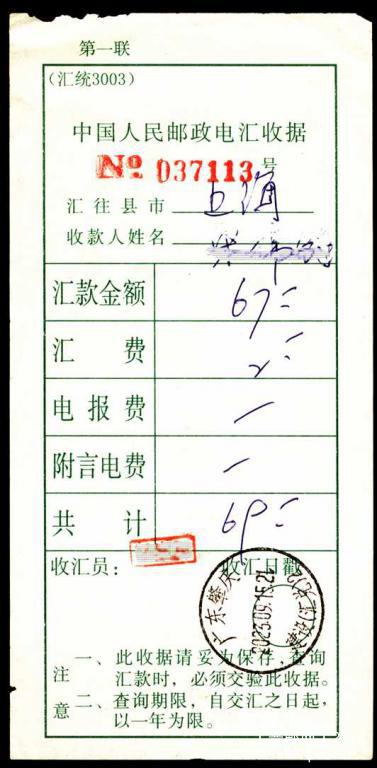 第一联
(汇统3003)
中国人民邮政电汇收据
№ 037113号
汇往县市 上海
收款人姓名
汇款金额 67=
汇费 2=
电报费 —
附言电费 —
共计 69=
收汇员： 收汇日戳
广东肇庆
2023.09.15.21
注意
一、此收据请妥为保存，查询
汇款时，必须交验此收据。
二、查询期限，自交汇之日起，
以一年为限。